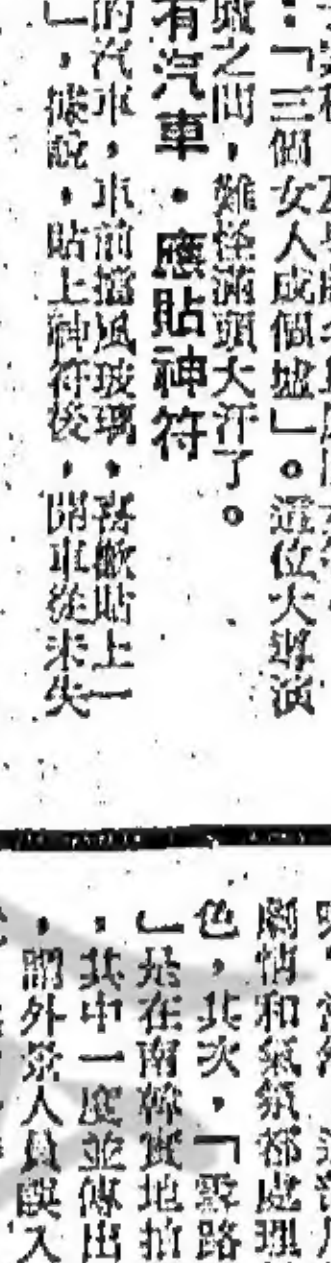 ：「三個女人成個墟」。這位大導演
墟之間，難怪滿頭大汗了。
有汽車．應貼神符
的汽車，車前擋風玻璃，喜歡貼上一
」，據說，貼上神符後，開車從未失
劇情和氣氛都處理
色，其次，「雲路
」是在南韓實地拍
，其中一度並傳出
，謂外景人員誤入